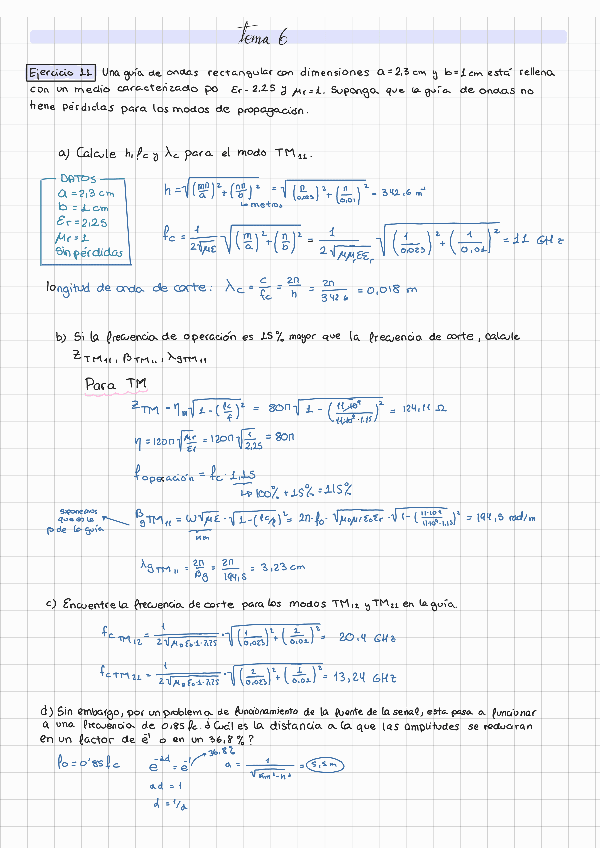 tema 6
Ejercicio 11 Una guía de ondas rectangular con dimensiones a=2,3 cm y b=1 cm está rellena
con un medio caracterizado po εr=2.25 y μr=1. Suponga que la guía de ondas no
tiene pérdidas para los modos de propagación.
a) Calcule h, fc y λc para el modo TM11.
DATOS
a = 2,3 cm
b = 1 cm
εr = 2,25
μr = 1
sin pérdidas
h = √((mπ/a)² + (nπ/b)²) = √((π/0,023)² + (π/0,01)²) = 342,6 m⁻¹
↳ metros
fc = 1/(2√με) √((m/a)² + (n/b)²) = 1/(2√μμrεεr) √((1/0,023)² + (1/0,01)²) = 11 GHz
longitud de onda de corte: λc = c/fc = 2π/h = 2π/342,6 = 0,018 m
b) Si la frecuencia de operación es 15% mayor que la frecuencia de corte, calcule
ZTM11, βTM11, λgTM11
Para TM
ZTM = η √(1-(fc/f)²) = 80π √(1-(11·10⁹/11·10⁹·1.15)²) = 124,11 Ω
η = 120π √(μr/εr) = 120π √(1/2,25) = 80π
foperación = fc · 1,15
↳ 100% + 15% = 115%
suponemos
que es la
β de la guía
βgTM11 = ω√με · √(1-(fc/f)²) = 2π·fo · √μoμrεoεr · √(1-(11·10⁹/11·10⁹·1.15)²) = 194,5 rad/m
λgTM11 = 2π/βg = 2π/194,5 = 3,23 cm
c) Encuentre la frecuencia de corte para los modos TM12 y TM21 en la guía.
fcTM12 = 1/(2√μoεo·1·2.25) · √((1/0,023)² + (2/0.01)²) = 20,4 GHz
fcTM21 = 1/(2√μoεo·1·2.25) · √((2/0,023)² + (1/0.01)²) = 13,24 GHz
d) Sin embargo, por un problema de funcionamiento de la fuente de la señal, esta pasa a funcionar
a una frecuencia de 0.85 fc. ¿Cuál es la distancia a la que las amplitudes se reducirán
en un factor de e⁻¹ o en un 36,8%?
fo = 0'85 fc
e^-αd = e⁻¹ → 36,8%
αd = 1
d = 1/α